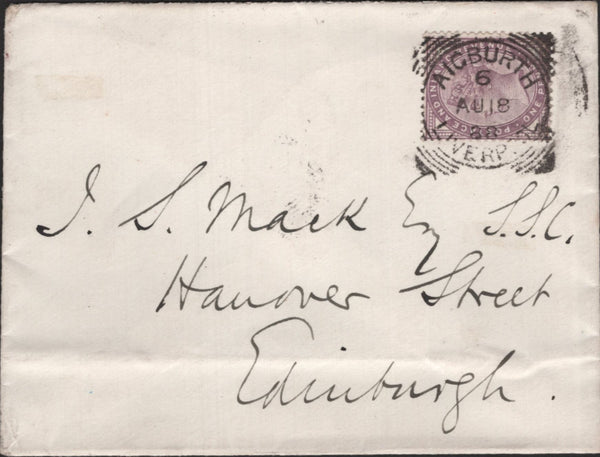 AIGBURTH
6
AU 18
88
LIVERP
J. S. Mack Esq S.S.C.
Hanover Street
Edinburgh.